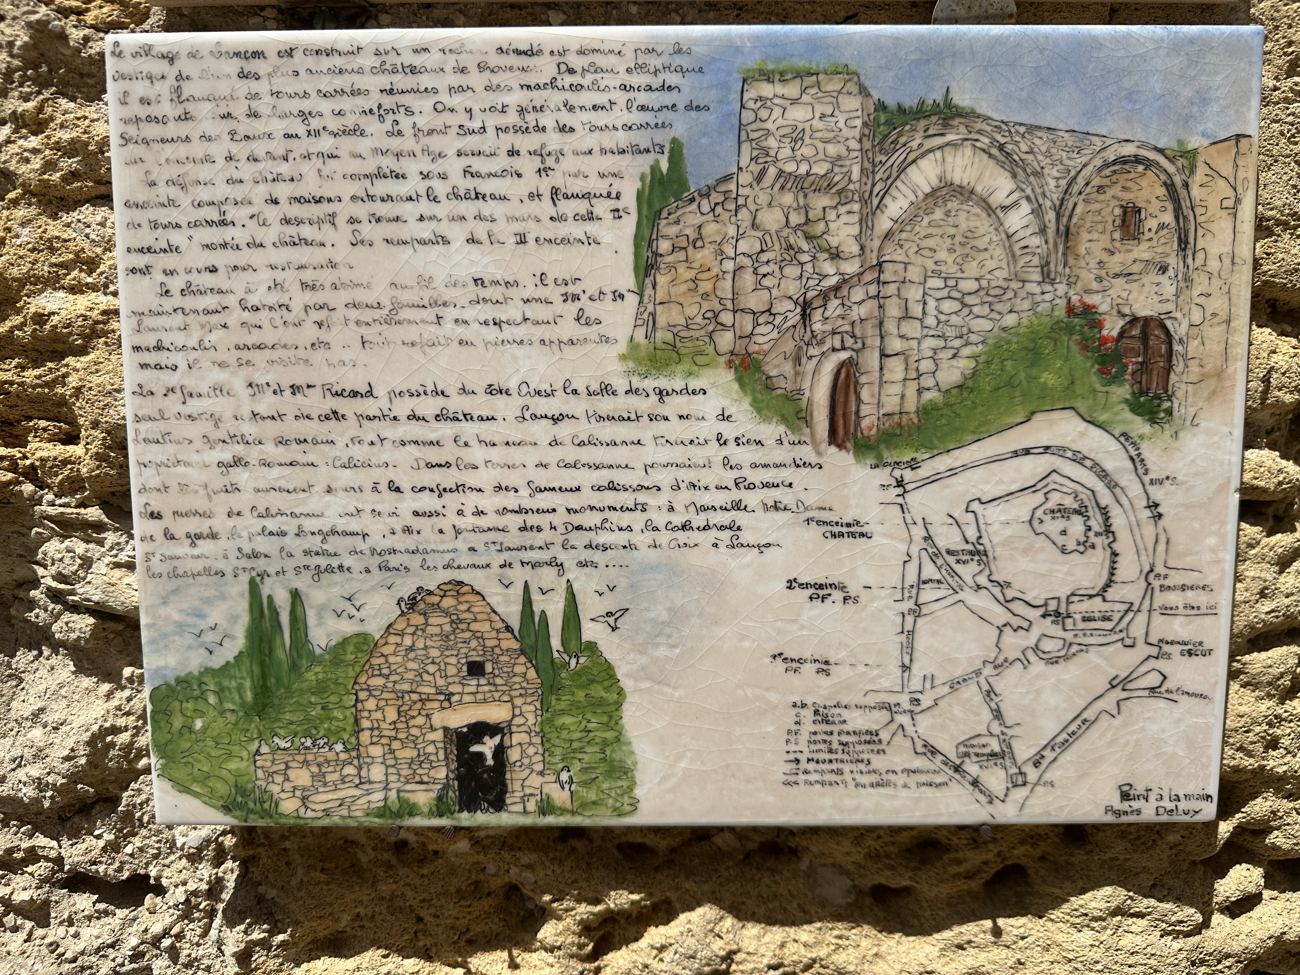 Le village de Lançon est construit sur un rocher dénudé est dominé par les
vestiges de l'un des plus anciens châteaux de Provence. De plan elliptique
il est flanqué de tours carrées réunies par des machicoulis-arcades
reposants sur de larges contreforts. On y voit généralement l'œuvre des
Seigneurs des Baux au XIIe siècle. Le front Sud possède des tours carrées
une enceinte de devant, et qui au Moyen Age servait de refuge aux habitants
La défense du château fut complétée sous François 1er par une
enceinte composée de maisons entourant le château, et flanquée
de tours carrées. "le descriptif se trouve sur un des murs de cette IIe
enceinte" montée du château. Ses remparts de la III enceinte
sont en cours pour restauration
Le château a été très abimé au fil des temps. il est
maintenant habité par deux familles, dont une Me et Mr
Laurent Max qui l'ont refait entièrement en respectant les
machicoulis, arcades, etc .. tout refait en pierres apparentes
mais il ne se visite pas.
La 2e famille Mr et Mme Ricard possède du côte Ouest la salle des gardes
seul vestige restant de cette partie du château. Lançon tirerait son nom de
Lautius gentilice Romain, tout comme le hameau de Calissanne tirerait le sien d'un
propriétaire gallo-Romain : Calicius. Dans les terres de Calissanne poussaient les amandiers
dont les fruits auraient servis à la confection des fameux calissons d'Aix en Provence.
Les pierres de Calissanne ont servi aussi à de nombreux monuments : à Marseille Notre Dame
de la garde, le palais Longchamp, à Aix la fontaine des 4 Dauphins, la Cathédrale
St Sauveur, à Salon la statue de Nostradamus a St Laurent la descente de Croix à Lançon
les chapelles St Cyr et Ste Julette, a Paris les chevaux de Marly etc ....
LA GLACIERE
REMPARTS XIV° S.
1e enceinte
CHATEAU
CHATEAU
XI° S
a
d
b
RESTAURÉ
XVI° S
2e enceinte
P.F. P.S
P.F
BOUSSIERES
Vous êtes ici
EGLISE
P.S
3e enceinte
P.F. P.S
GRAND RUE
P.S
ESCUT
Rue de l'amour
a.b. Chapelles supposées
c. Prison
d. citerne
P.F. portes fortifiées
P.S portes supposées
limites supposées
MEURTRIERES
Remparts visibles en épaisseur
Remparts "en arêtes de poisson"
XVI° S
P.S
Rue Pasteur
Peint à la main
Agnès DeLuy